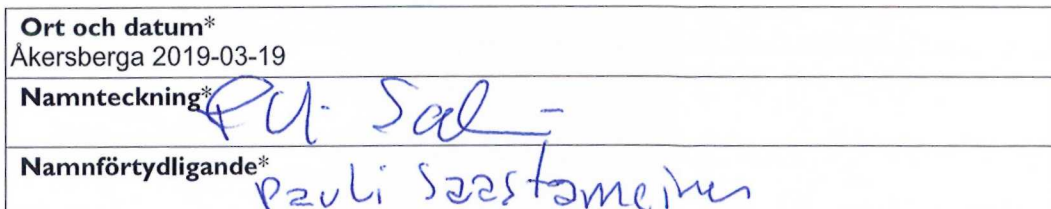 Ort och datum*
Åkersberga 2019-03-19
Namnteckning*
Namnförtydligande*
Pauli Saastamoinen